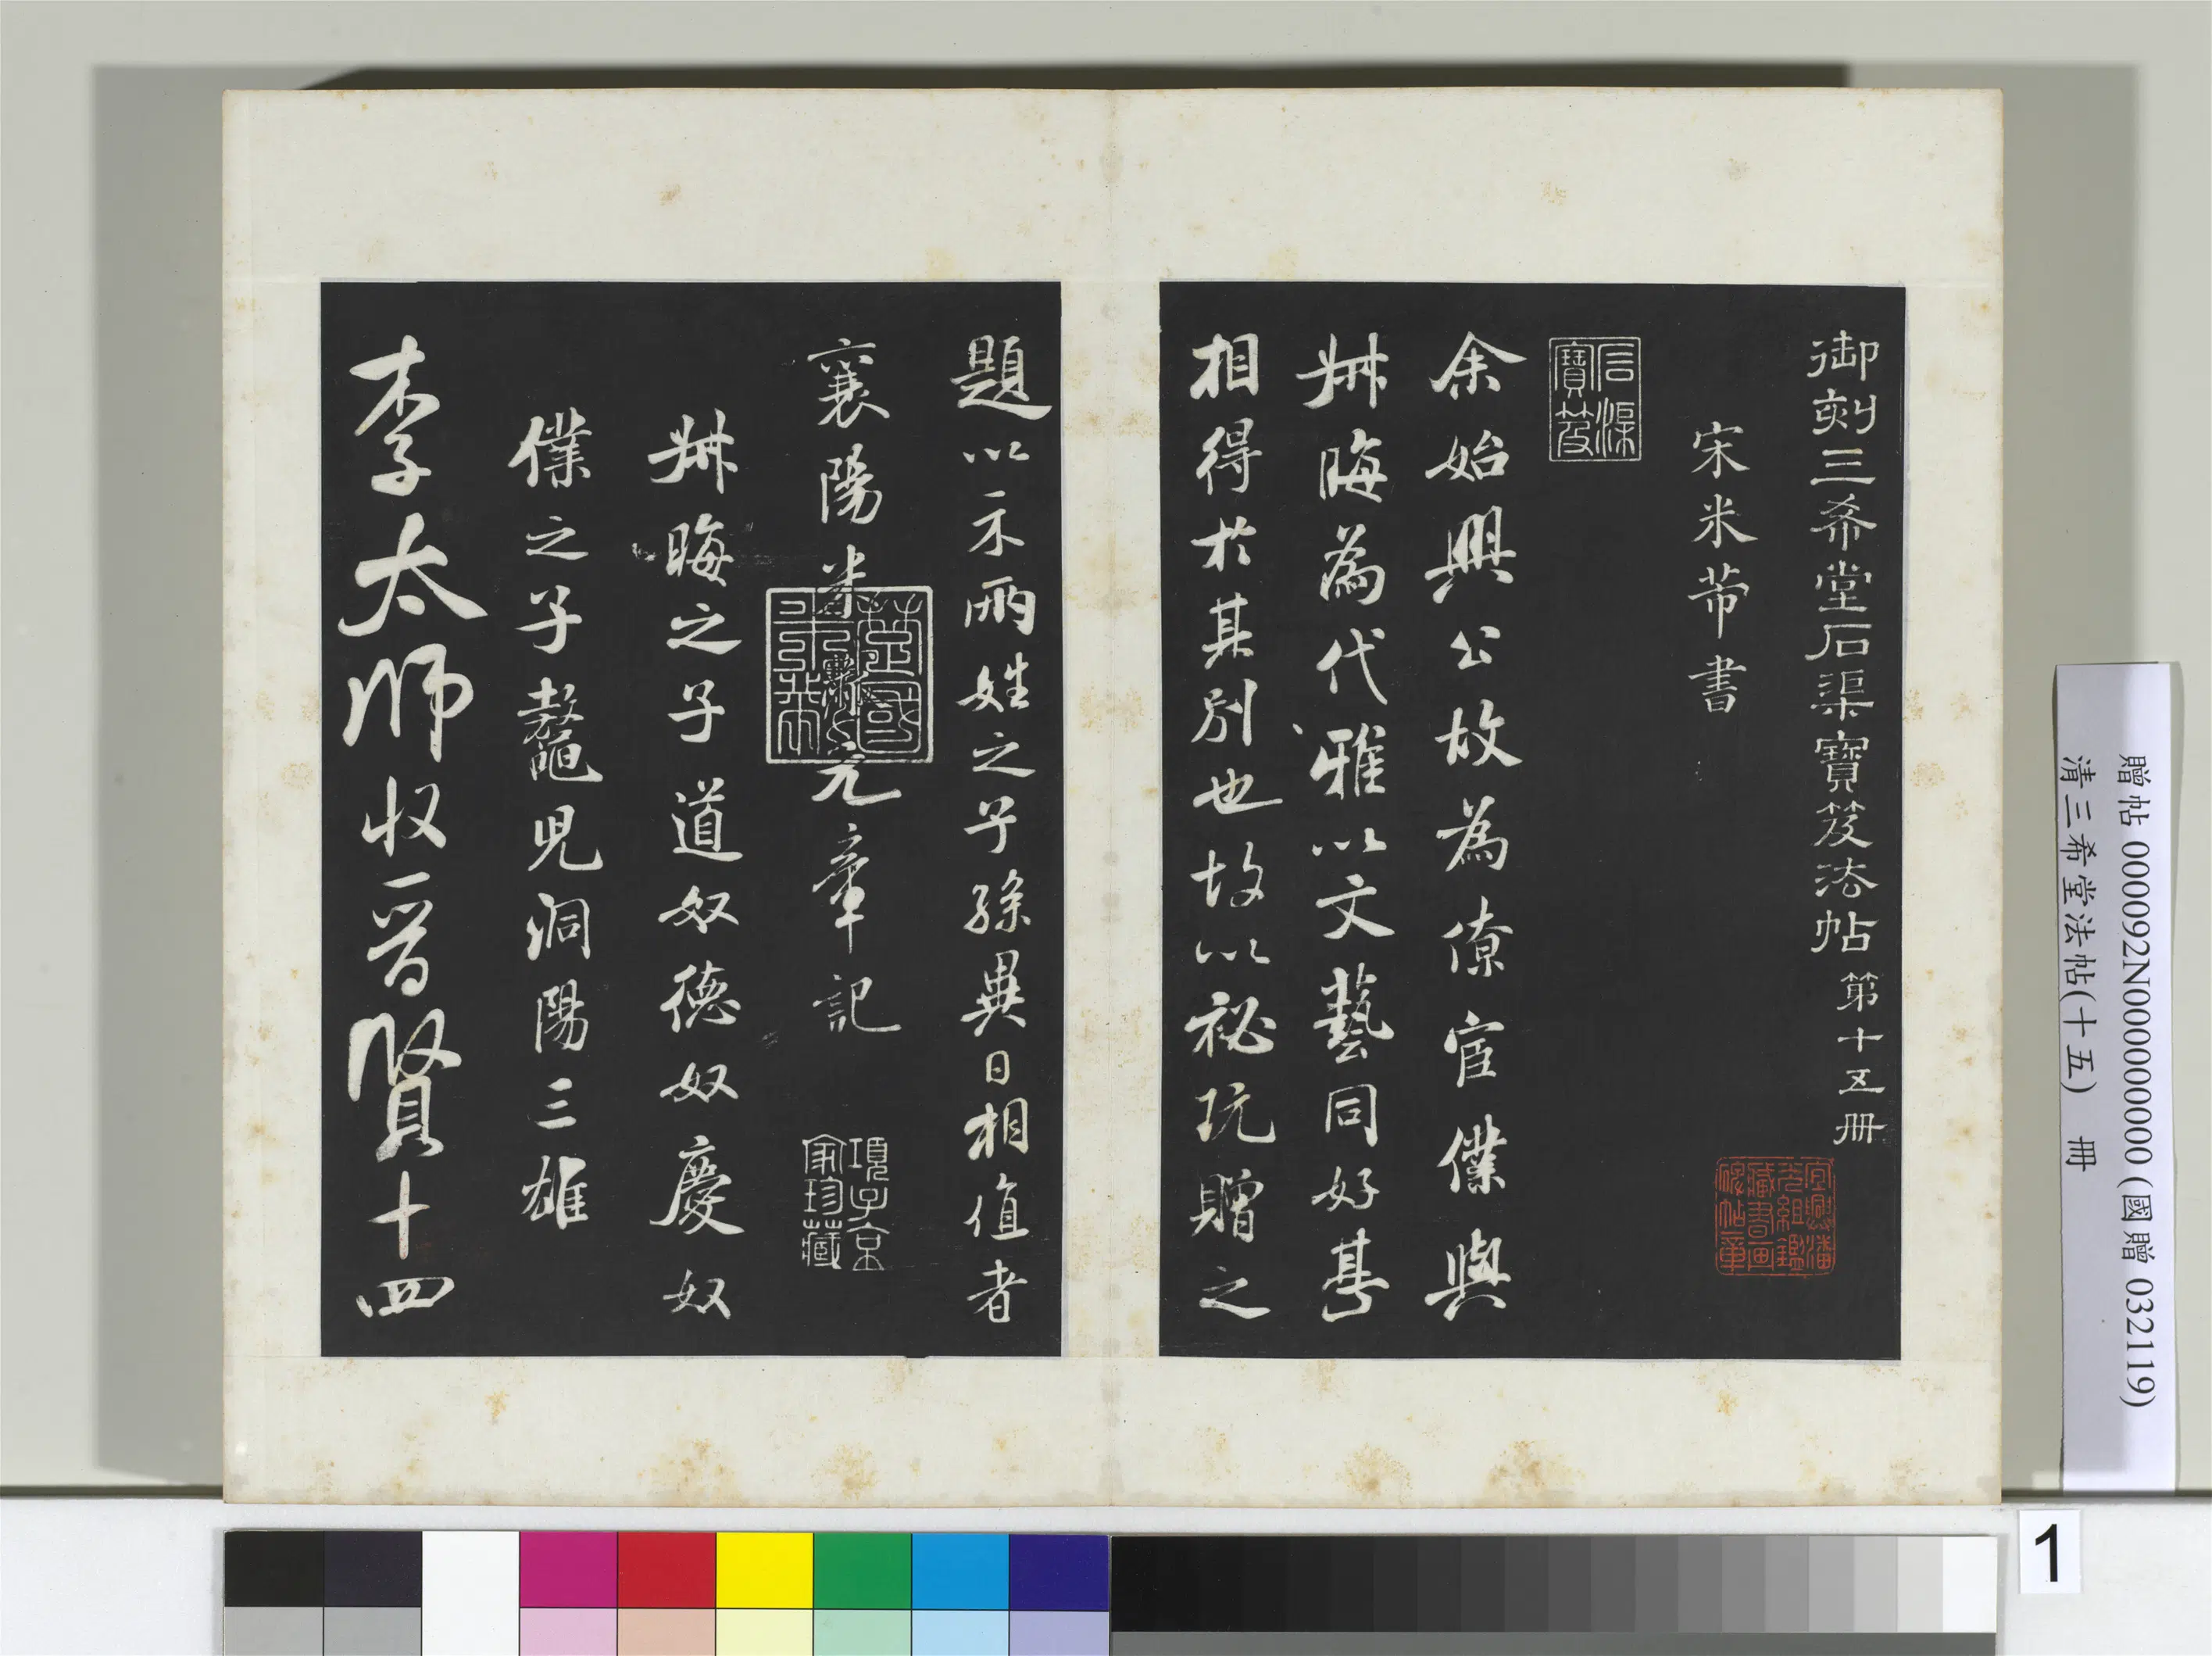 御刻三希堂石渠寶笈法帖 第十五冊
宋米芾書
石渠寶笈
余始興公故為僚宦僕與
叔晦為代雅以文藝同好甚
相得於其別也故以祕玩贈之
題以示兩姓之子孫異日相值者
襄陽米黻元章記
項子京家珍藏
叔晦之子道奴德奴慶奴
僕之子鼇兒洞陽三雄
李太師收晉賢十四
贈帖 000092N000000000 (國贈 032119)
清三希堂法帖(十五) 冊
1